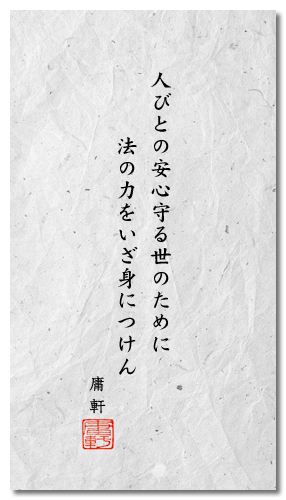 人びとの安心守る世のために
法の力をいざ身につけん
庸軒
庸軒